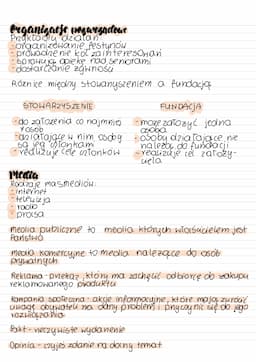 Organizacje pozarządowe
Przykłady działań
- organizowanie festynów
- prowadzenie kół zainteresowań
- sprawują opiekę nad seniorami
- dostarczanie żywności
Różnice między stowarzyszeniem a fundacją
STOWARZYSZENIE
- do założenia co najmniej
7 osób
- działające w nim osoby
są jej członkami
- realizuje cele członków
FUNDACJA
- może założyć jedna
osoba
- osoby działające nie
należą do fundacji
- realizuje cel założy-
ciela
Media
Rodzaje masmediów:
- internet
- telewizja
- radio
- prasa
Media publiczne to media których właścicielem jest
Państwo
Media komercyjne to media należące do osób
prywatnych
Reklama - przekaz, który ma zachęcić odbiorcę do zakupu
reklamowanego produktu
Kampania społeczna - akcje informacyjne, które mają zwrócić
uwagę obywateli na dany problem i przyczynić się do jego
rozwiązania
Fakt - rzeczywiste wydarzenie
Opinia - czyjeś zdanie na dany temat